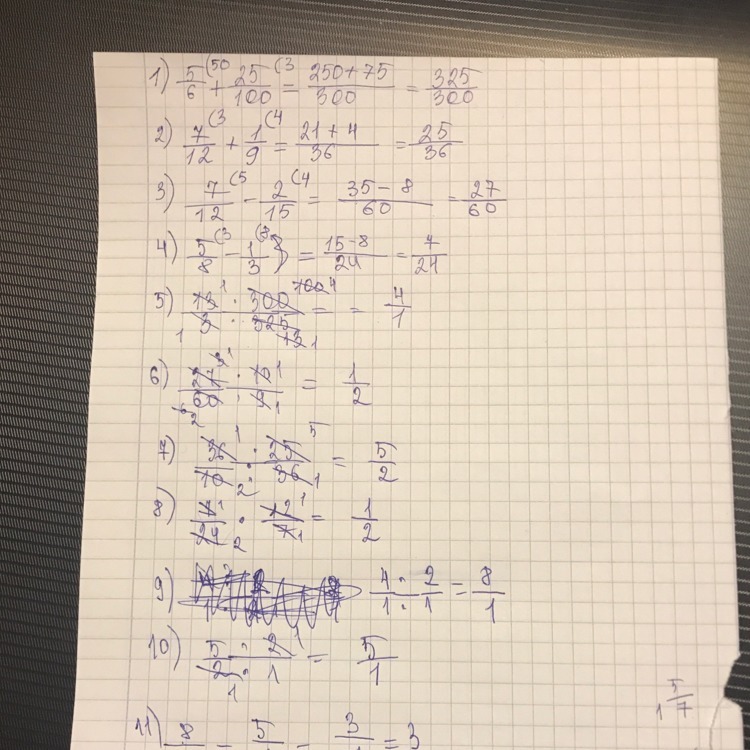 1) 5/6 (50 + 25/100 (3 = 250+75/300 = 325/300
2) 7/12 (3 + 1/9 (4 = 21+4/36 = 25/36
3) 7/12 (5 - 2/15 (4 = 35-8/60 = 27/60
4) 5/8 (3 - 1/3 (8 ) = 15-8/24 = 7/24
5) 13/3 · 300/325 = = 4/1
6) 27/60 · 10/9 = 1/2
7) 36/10 · 25/36 = 5/2
8) 7/24 · 12/7 = 1/2
9) 4·2/1·1 = 8/1
10) 5·2/2·1 = 5/1
1 5/7
11) 8 - 5 = 3 = 3